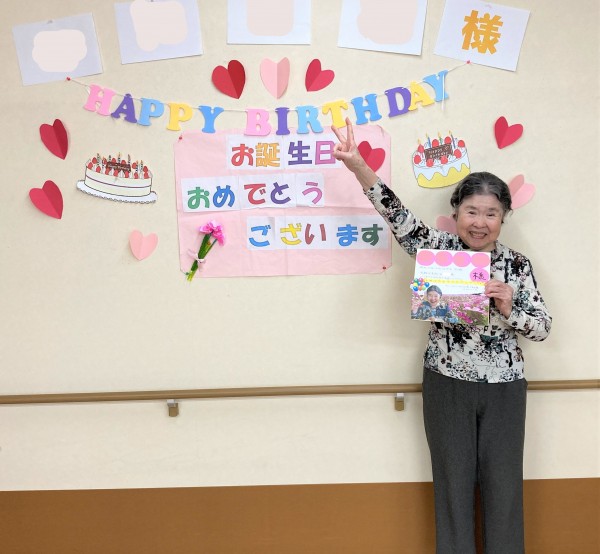 様
HAPPY BIRTHDAY
お誕生日
おめでとう
ございます
様